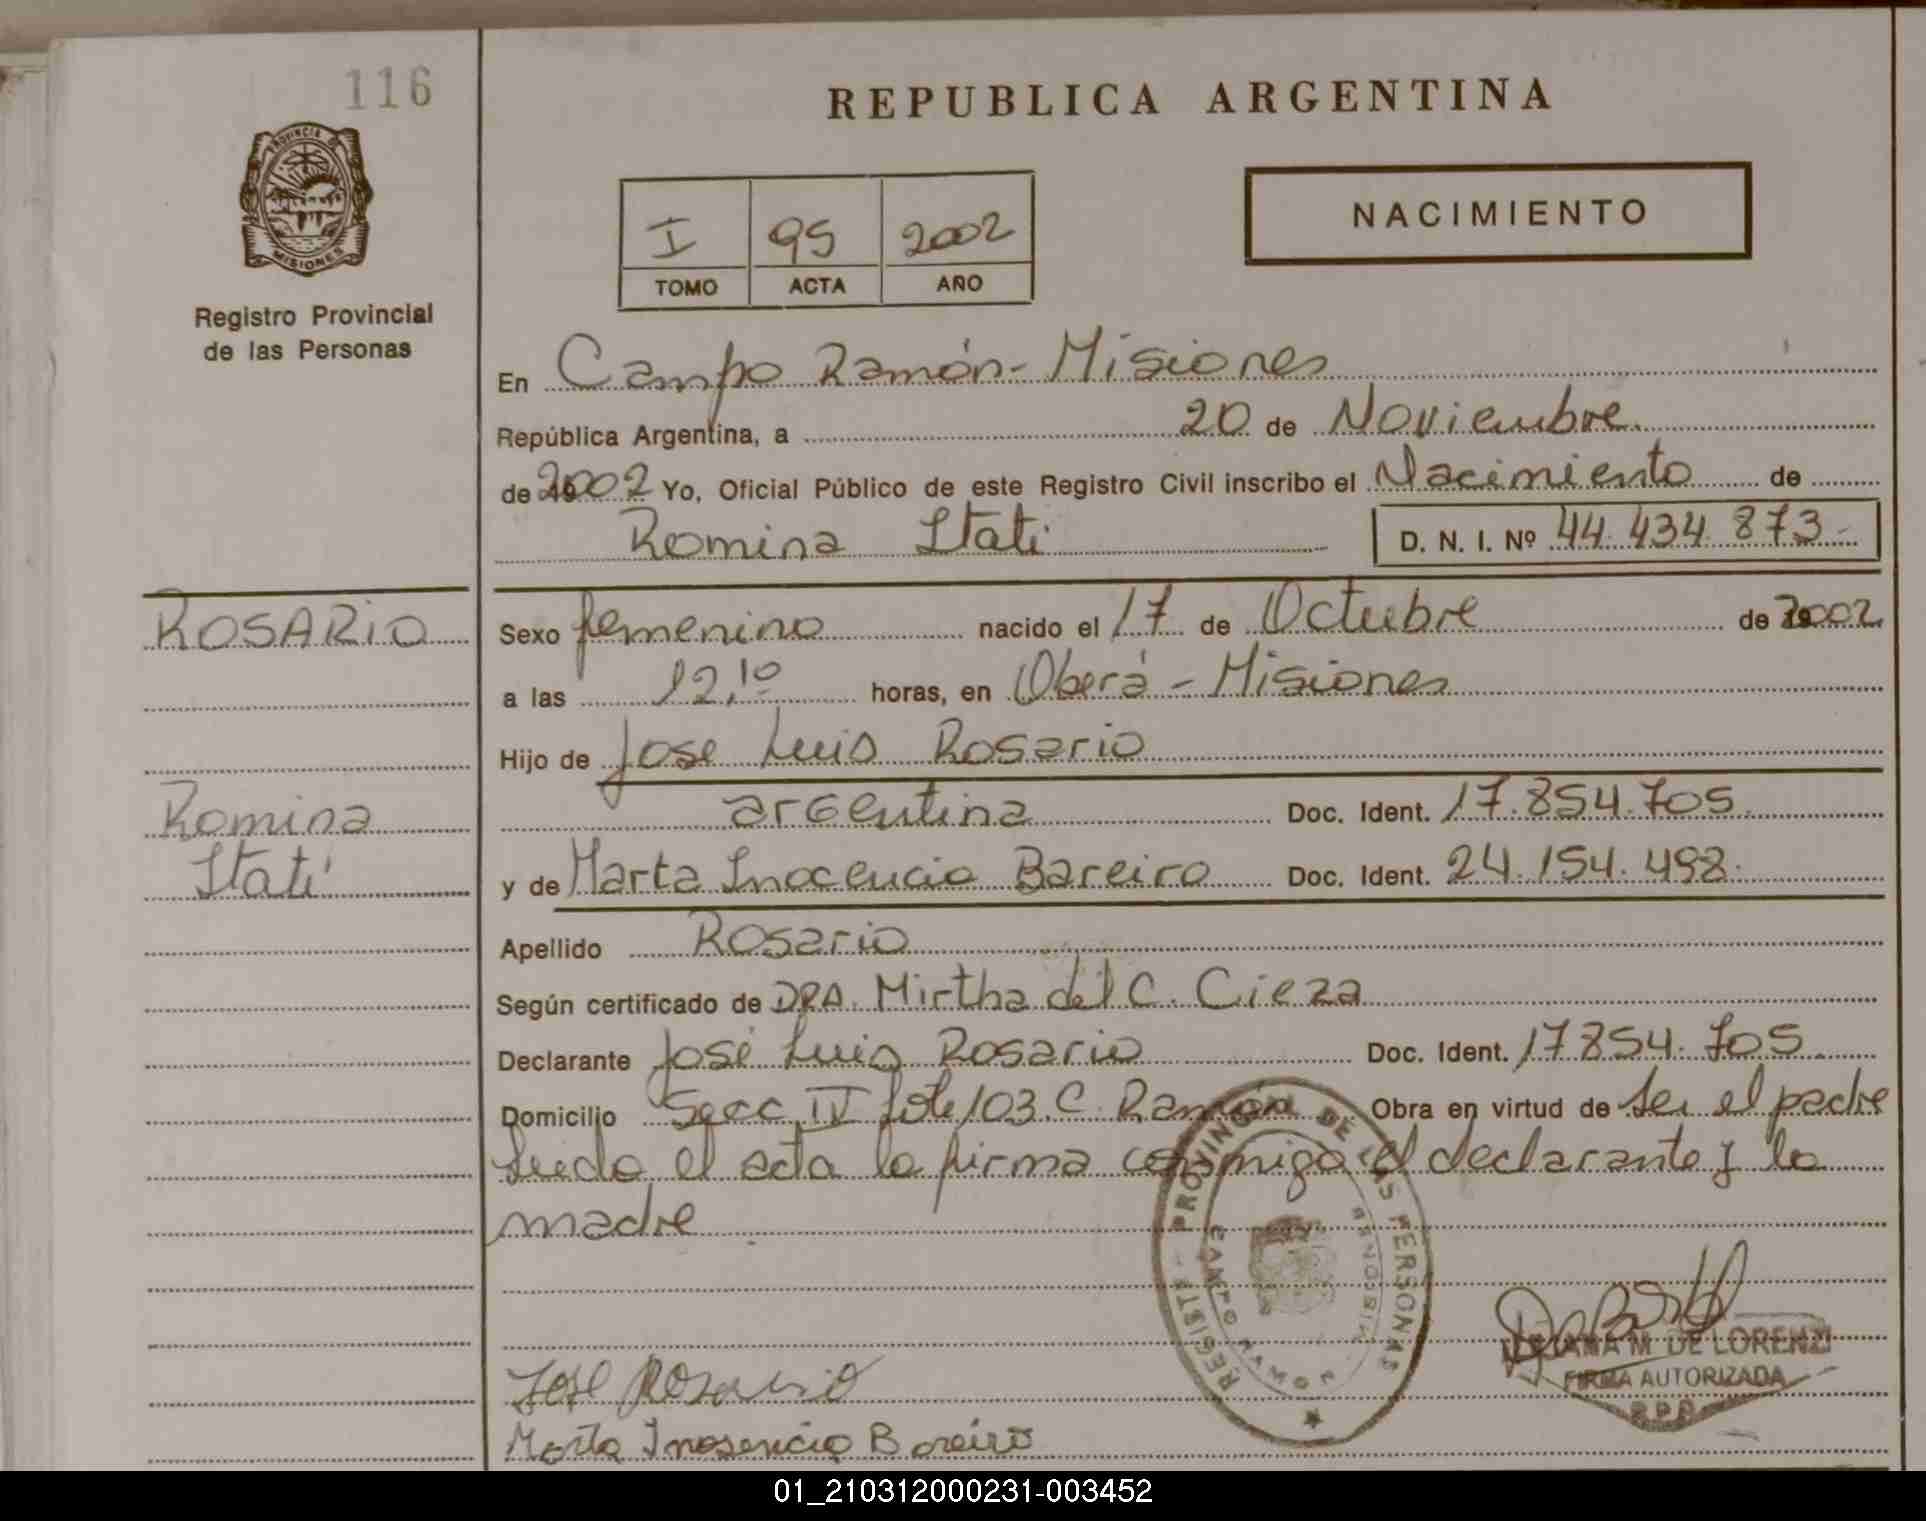 116
REPUBLICA ARGENTINA
PROVINCIA DE
MISIONES
I 95 2002
TOMO ACTA AÑO
NACIMIENTO
Registro Provincial
de las Personas
En Campo Ramón - Misiones
República Argentina, a 20 de Noviembre
de 2002 Yo, Oficial Público de este Registro Civil inscribo el Nacimiento de
Romina Itatí D. N. I. Nº 44.434.873-
ROSARIO
Sexo femenino nacido el 17 de Octubre de 2002
a las 12,10 horas, en Oberá - Misiones
Hijo de Jose Luis Rosario
Romina
argentina Doc. Ident. 17.854.705.
Itatí
y de Marta Inocencia Bareiro Doc. Ident. 24.154.498.
Apellido Rosario
Según certificado de DRA. Mirtha del C. Cieza
Declarante José Luis Rosario Doc. Ident. 17854.705
Domicilio Secc IV lote 103 C. Ramón Obra en virtud de ser el padre
Leida el acta la firma conmigo el declarante y la
madre
REGISTRO PROVINCIAL DE LAS PERSONAS
CAMPO RAMON
MISIONES
Jose Rosario
Marta Inosencia Bareiro
ANA M. DE LORENZI
FIRMA AUTORIZADA
R.P.P.
01_210312000231-003452